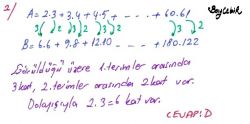 2/ A = 2.3 + 3.4 + 4.5 + - - - - + 60.61
3 2 3 2 3 2 3 2
B = 6.6 + 9.8 + 12.10 - - - - + 180.122
Görüldüğü üzere 1. terimler arasında
3 kat, 2. terimler arasında 2 kat var.
Dolayısıyla 2.3 = 6 kat var.
CEVAP: D